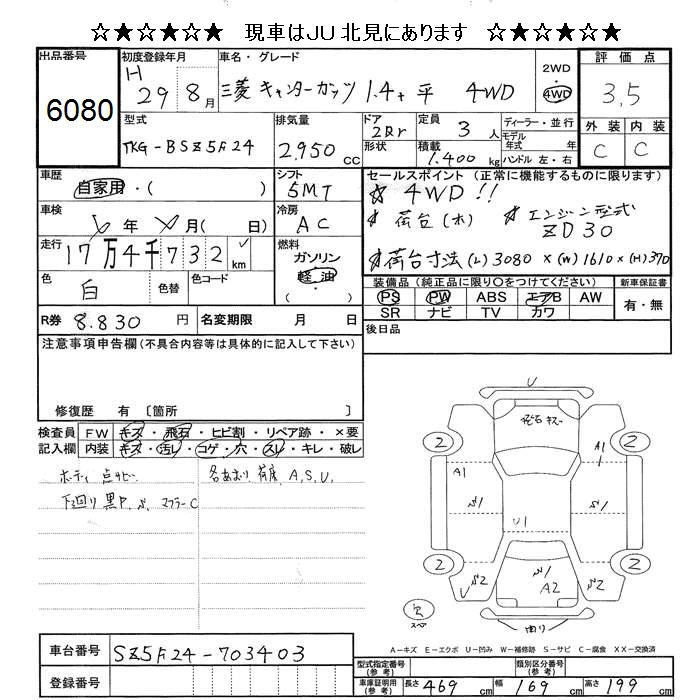 ☆★☆★☆★☆ 現車はJU 北見にあります ☆★☆★☆★☆
出品番号 初度登録年月 車名・グレード 2WD 評価点
6080 H 29 8月 三菱 キャンターガッツ 1.4t 平 4WD 4WD 3.5
型式 排気量 ドア 定員 ディーラー・並行 外装 内装
TKG-BSZ5F24 2,950 cc 2Dr 3 人 モデル年式 年 C C
形状 積載 1.400 kg ハンドル 左・右
車歴 自家用・( ) シフト 5MT セールスポイント (正常に機能するものに限ります)
☆ 4WD!!
車検 年 月( 日) 冷房 AC ☆ 荷台(木) ☆ エンジン型式
ZD30
走行 17万4千732 km 燃料 ガソリン 軽油 ・( ) ☆荷台寸法 (L) 3080 × (W) 1610 × (H) 370
色 白 色替 色コード 装備品 (純正品に限り〇をつけてください) 新車保証書
PS PW ABS エアB AW 有・無
SR ナビ TV カワ
R券 8.830 円 名変期限 月 日 後日品
注意事項申告欄 (不具合内容等は具体的に記入して下さい)
修復歴 有 〔箇所 〕
検査員 FW キズ・飛石・ヒビ割・リペア跡・×要
記入欄 内装 キズ・汚レ・コゲ・穴・スレ・キレ・破レ
ボディ 点サビ 各あおり 荷席 A,S,U.
下回り 黒P. マフラーC
U
飛石 キズ
2 2
A1 A1
U1
2 2
U S2 A2 S2
スペア
A－キズ E－エクボ U－凹み W－補修跡 S－サビ C－腐食 XX－交換済
車台番号 SZ5F24-703403
登録番号
型式指定番号(参考) 類別区分番号(参考)
車庫証明用(参考) 長さ 469 cm 幅 169 cm 高さ 199 cm